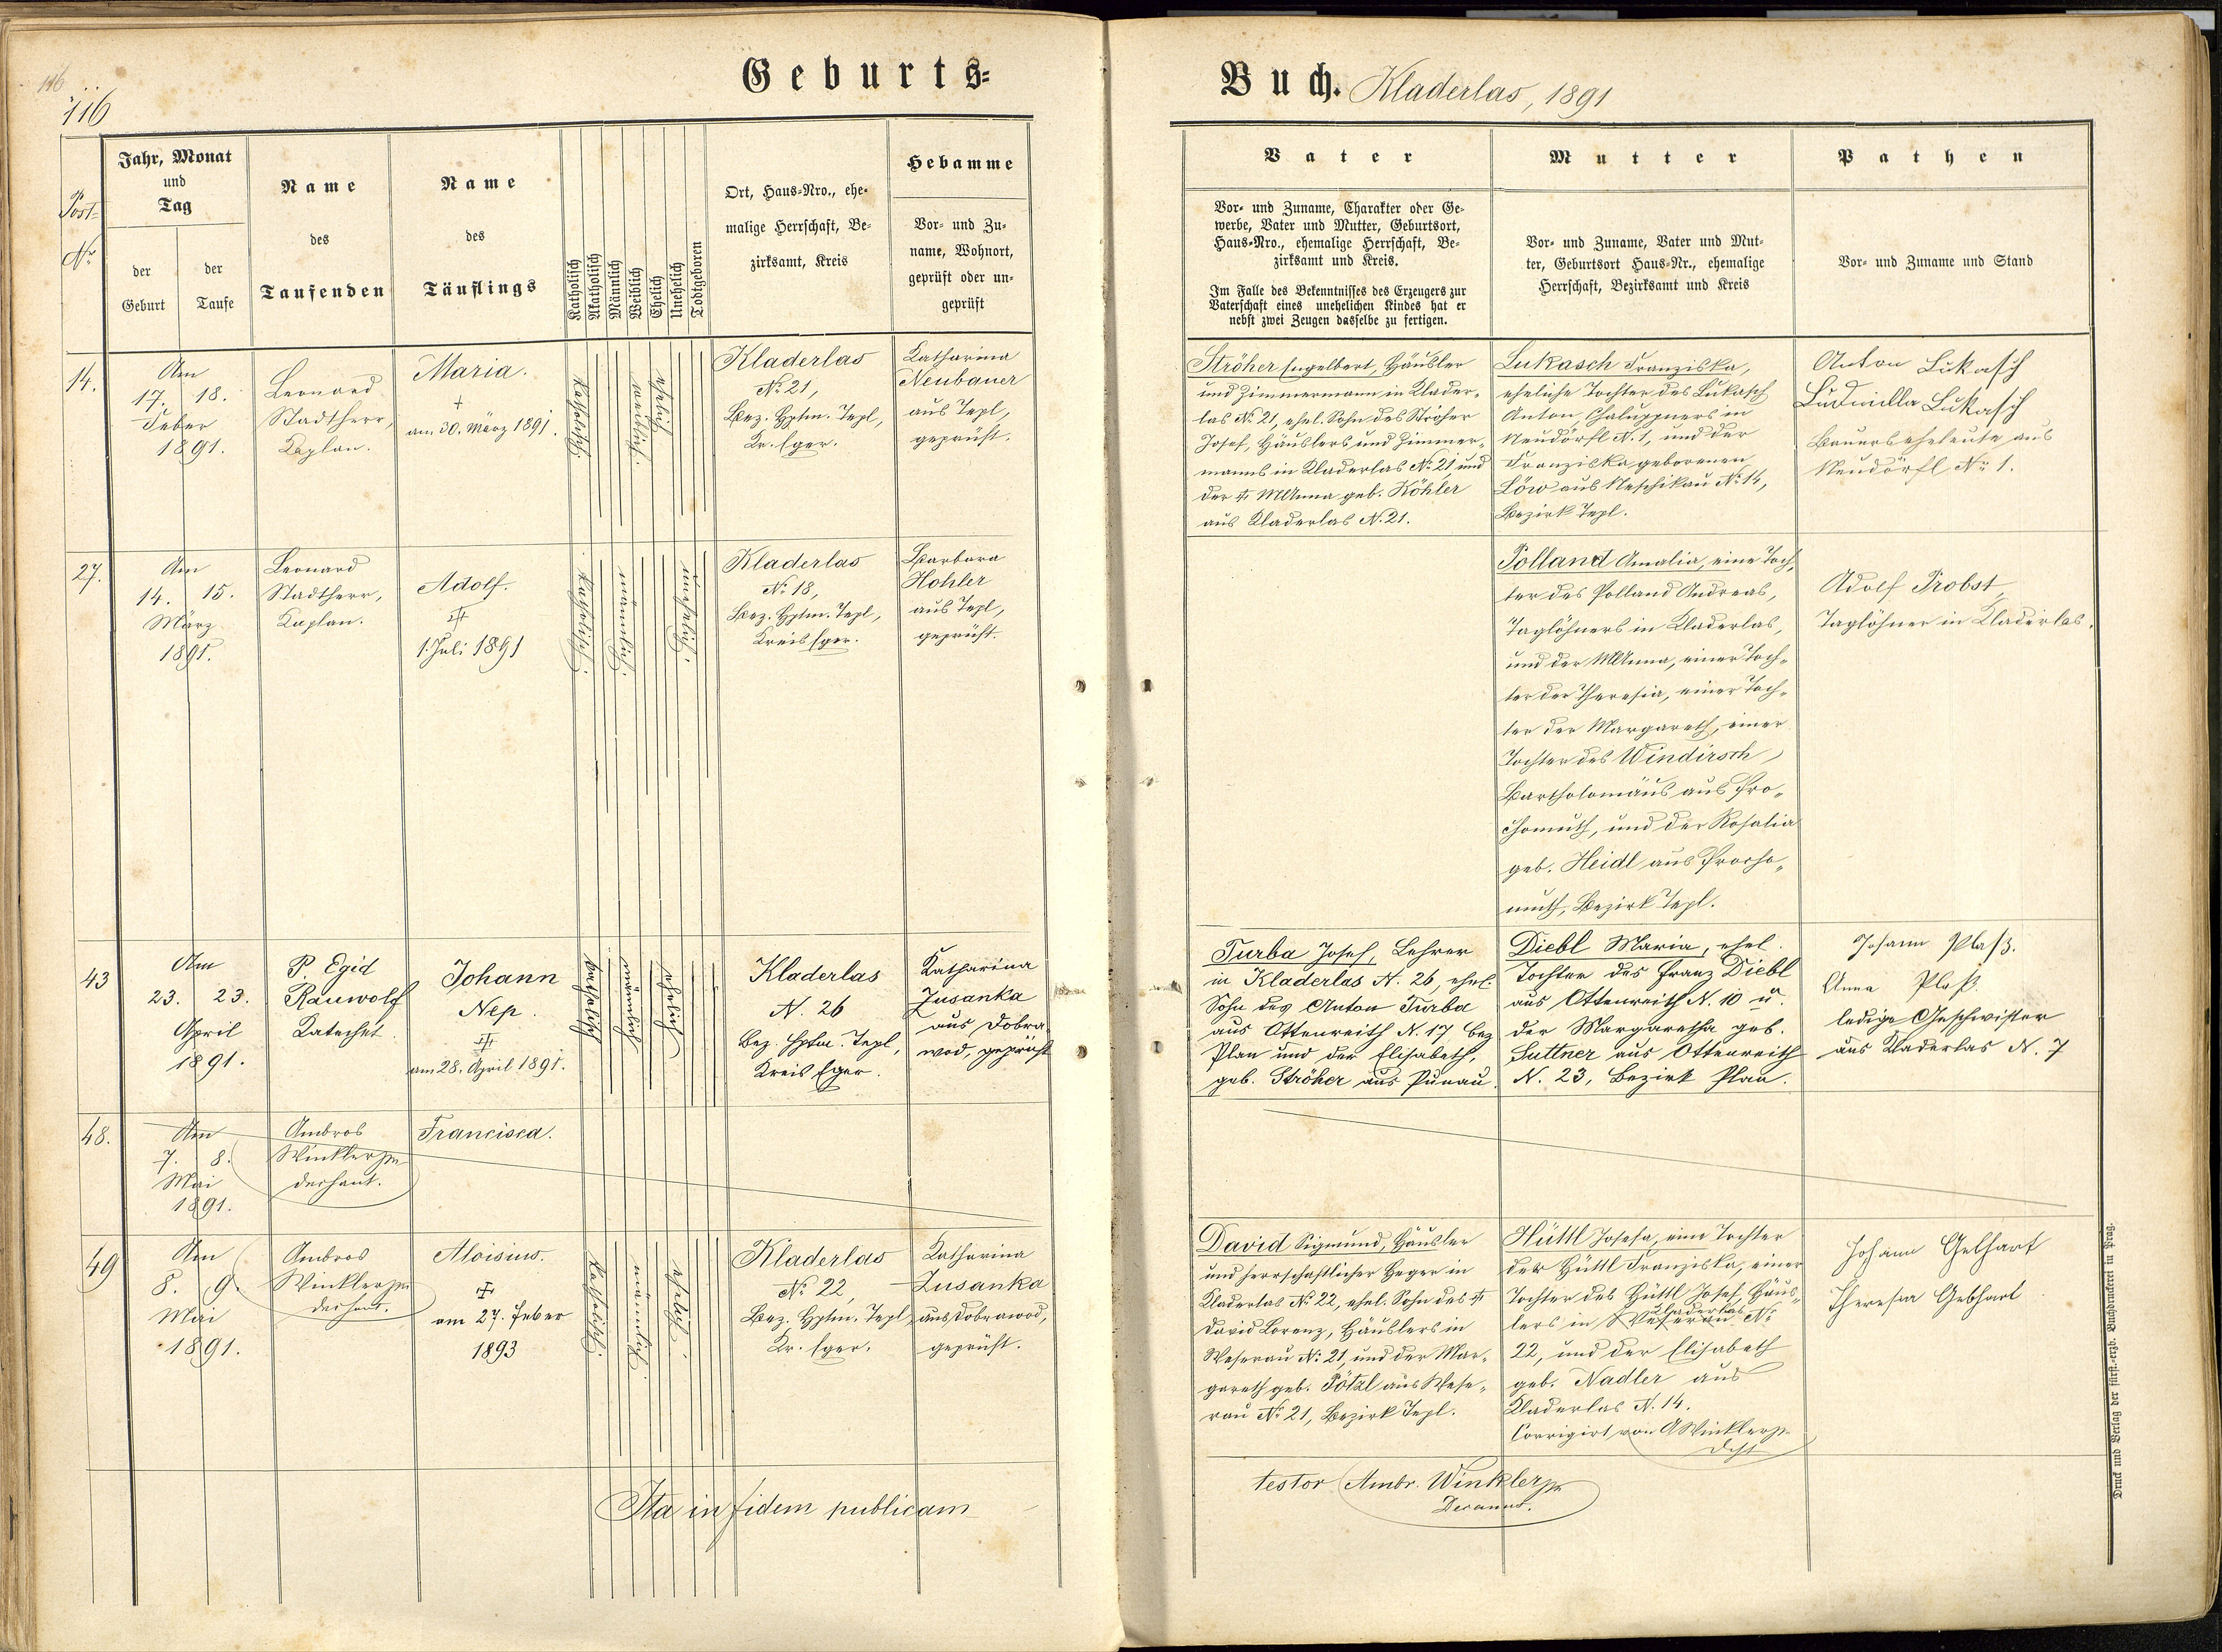 116
116
Geburts=
Buch. Kladerlas, 1891
Post=
Nr
Jahr, Monat
und
Tag
der
Geburt
der
Taufe
Name
des
Taufenden
Name
des
Täuflings
Katholisch
Akatholisch
Männlich
Weiblich
Ehelich
Unehelich
Todtgeboren
Ort, Haus=Nro., ehe=
malige Herrschaft, Be=
zirksamt, Kreis
Hebamme
Vor= und Zu=
name, Wohnort,
geprüft oder un=
geprüft
Vater
Vor= und Zuname, Charakter oder Ge=
werbe, Vater und Mutter, Geburtsort,
Haus=Nro., ehemalige Herrschaft, Be=
zirksamt und Kreis.
Im Falle des Bekenntnisses des Erzeugers zur
Vaterschaft eines unehelichen Kindes hat er
nebst zwei Zeugen dasselbe zu fertigen.
Mutter
Vor= und Zuname, Vater und Mut=
ter, Geburtsort Haus=Nr., ehemalige
Herrschaft, Bezirksamt und Kreis
Pathen
Vor= und Zuname und Stand
14.
Am
17. 18.
Feber
1891.
Leonard
Stadtherr,
Kaplan.
Maria.
+
am 30. März 1891.
katholisch.
weiblich.
ehelich
Kladerlas
No 21,
Bez. Hptm. Tepl,
Kr. Eger.
Katharina
Neubauer
aus Tepl,
geprüft.
Ströher Engelbert, Häusler
und Zimmermann in Klader=
las No 21, ehel. Sohn des Ströher
Josef, Häuslers und Zimmer=
manns in Kladerlas No 21 und
der MAnna geb. Köhler
aus Kladerlas N. 21.
Lukasch Franziska,
eheliche Tochter des Lukasch
Anton, Chaluppners in
Neudörfl N. 1, und der
Franziska geborenen
Löw aus Neschikau No 14,
Bezirk Tepl.
Anton Lukasch
Ludmilla Lukasch
Bauerseheleute aus
Neudörfl No 1.
27.
Am
14. 15.
März
1891.
Leonard
Stadtherr,
Kaplan.
Adolf.
1. Juli 1891
katholisch.
männlich.
unehelich.
Kladerlas
No 18,
Bez. Hptm. Tepl,
Kreis Eger.
Barbara
Hohler
aus Tepl,
geprüft.
Polland Amalia, eine Toch=
ter des Polland Andreas,
Taglöhners in Kladerlas,
und der MAnna, einer Toch=
ter der Theresia, einer Toch=
ter der Margareth, einer
Tochter des Windirsch
Bartholomäus aus Pro=
chomuth, und der Rosalia
geb. Heidl aus Procho=
muth, Bezirk Tepl.
Adolf Probst,
Taglöhner in Kladerlas.
43
Am
23. 23.
April
1891.
P. Egid
Rauwolf
Katechet.
Johann
Nep.
am 28. April 1891.
katholisch
männlich
ehelich
Kladerlas
N. 26
Bez. Hptm. Tepl,
Kreis Eger.
Katharina
Zusanka
aus Dobra
wod, geprüft
Turba Josef, Lehrer
in Kladerlas N. 26, ehel.
Sohn des Anton Turba
aus Ottenreith N. 17 Bez
Plan und der Elisabeth,
geb. Ströher aus Punau.
Diebl Maria, ehel.
Tochter des Franz Diebl
aus Ottenreith N. 10 u.
der Margaretha geb.
Suttner aus Ottenreith
N. 23, Bezirk Plan.
Johann Plaß.
Anna Plaß.
ledige Geschwister
aus Kladerlas N. 7
48.
Am
7. 8.
Mai
1891.
Ambros
Winkler
Dechant.
Francisca.
49
Am
8. 9.
Mai
1891.
Ambros
Winkler
Dechant.
Aloisius.
am 27. Feber
1893
katholisch.
männlich.
ehelich.
Kladerlas
No 22,
Bez. Hptm. Tepl
Kr. Eger.
Katharina
Zusanka
aus Dobrawod,
geprüft.
David Sigmund, Häusler
und herrschaftlicher Heger in
Kladerlas No 22, ehel. Sohn des
David Lorenz, Häuslers in
Weserau No 21, und der Mar=
gareth geb. Pötzl aus Wese=
rau No 21, Bezirk Tepl.
Hüttl Josefa, eine Tochter
der Hüttl Franziska, einer
Tochter des Hüttl Josef, Häus=
Kladerlas
lers in Weserau No
22, und der Elisabeth
geb. Nadler aus
Kladerlas N. 14.
Corrigirt von AWinkler
Dcht
Johann Gebhart
Theresia Gebhart
Ita in fidem publicam
testor Ambr. Winkler
Decanus.
Druck und Verlag der fürst.=erzb. Buchdruckerei in Prag.